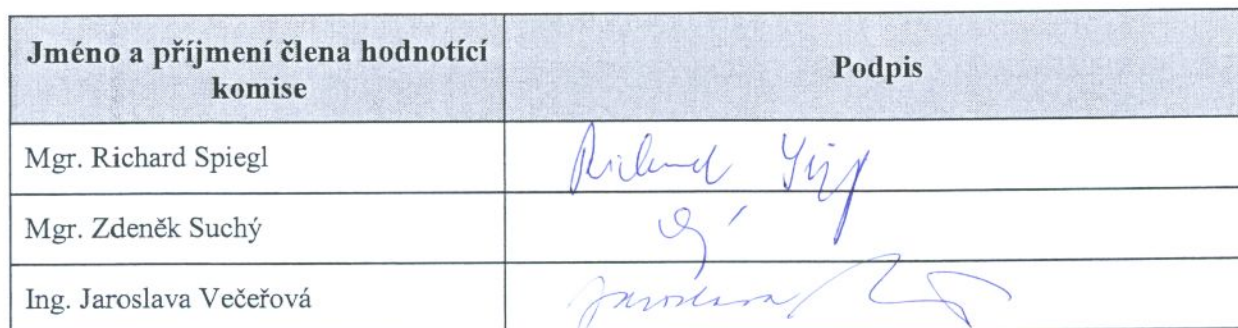 Jméno a příjmení člena hodnotící
komise
Podpis
Mgr. Richard Spiegl
Richard
Mgr. Zdeněk Suchý
Ing. Jaroslava Večeřová
Jaroslava